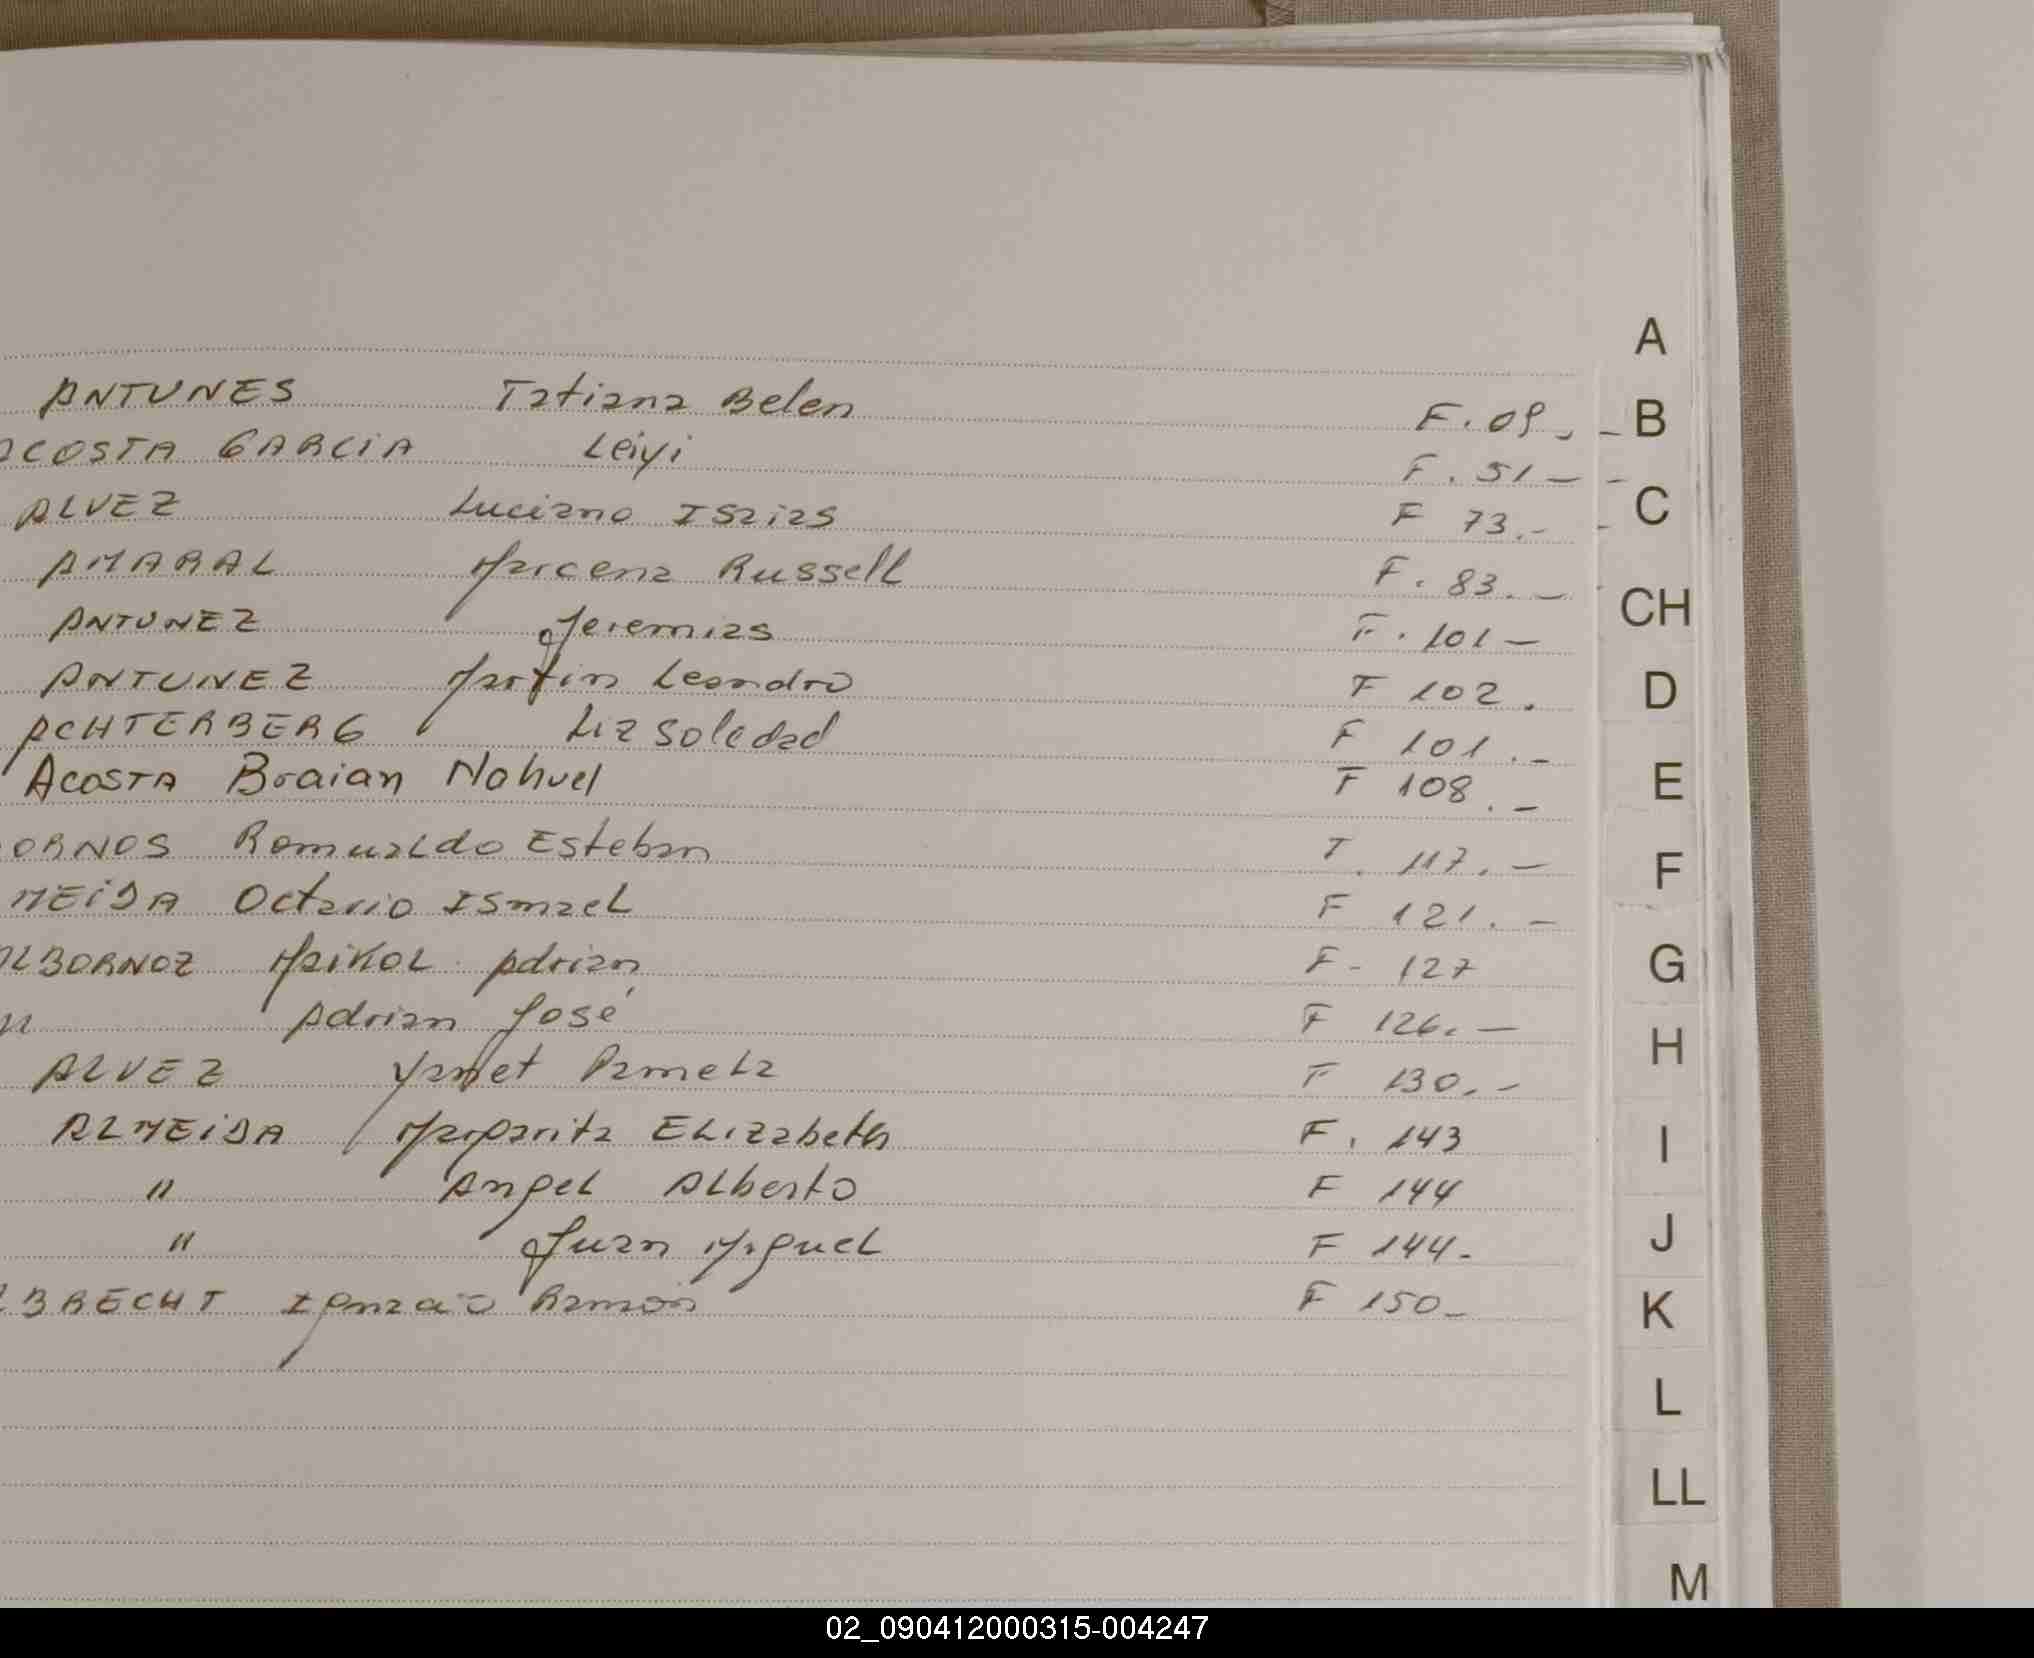 A
ANTUNES Tatiana Belen F. 09.-
ACOSTA GARCIA Leiyi F. 51-
ALVEZ Luciano Isaias F 73.-
AMARAL Macarena Russell F. 83.-
ANTUNEZ Jeremias F. 101-
ANTUNEZ Martin Leandro F 102.
ACHTERBERG Liz Soledad F 101.-
ACOSTA Braian Nahuel F 108.-
ORNOS Romualdo Esteban F. 117.-
MEIDA Octavio Ismael F 121.-
ALBORNOZ Maikol Adrian F- 127
" Adrian José F 126.-
ALVEZ Yanet Pamela F 130.-
ALMEIDA Margarita Elizabeth F. 143
" Angel Alberto F 144
" Juan Miguel F 144-
LBRECHT Ignacio Ramon F 150-
B
C
CH
D
E
F
G
H
I
J
K
L
LL
M
02_090412000315-004247